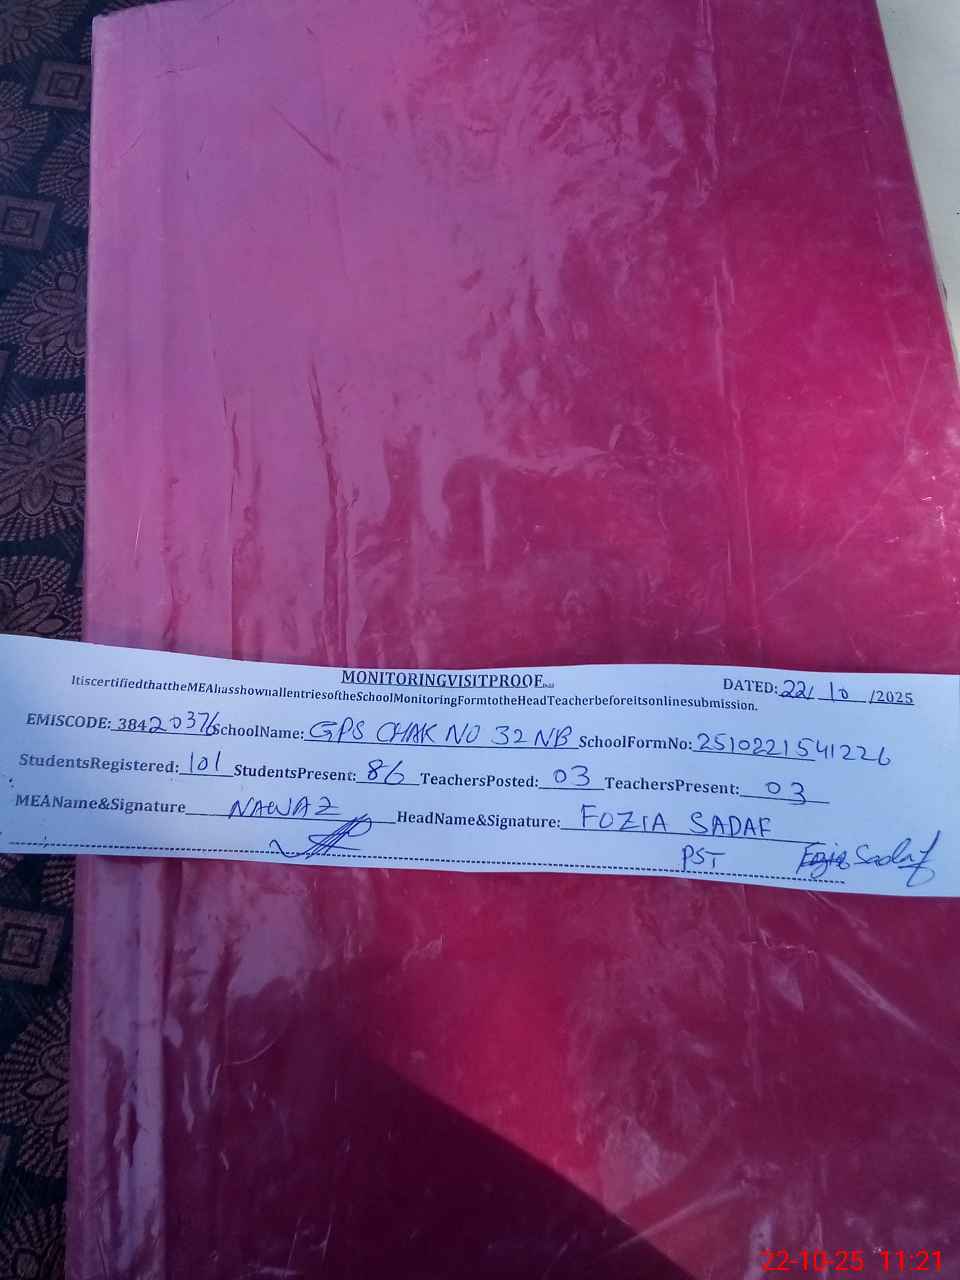 MONITORINGVISITPROOF
DATED: 22/ 10 /2025
ItiscertifiedthattheMEAhasshownallentriesoftheSchoolMonitoringFormtotheHeadTeacherbeforeitsonlinesubmission.
EMISCODE: 38420376 SchoolName: GPS CHAK NO 32 NB SchoolFormNo: 2510221541226
StudentsRegistered: 101 StudentsPresent: 86 TeachersPosted: 03 TeachersPresent: 03
MEAName&Signature NAWAZ HeadName&Signature: FOZIA SADAF
PST Fozia Sadaf
22-10-25 11:21